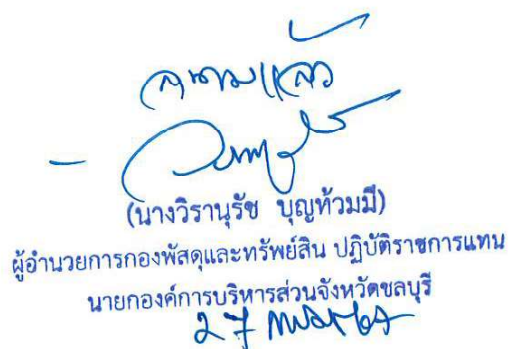 ลงนามแล้ว
(นางวิรานุรัช บุญท้วมมี)
ผู้อำนวยการกองพัสดุและทรัพย์สิน ปฏิบัติราชการแทน
นายกองค์การบริหารส่วนจังหวัดชลบุรี
27